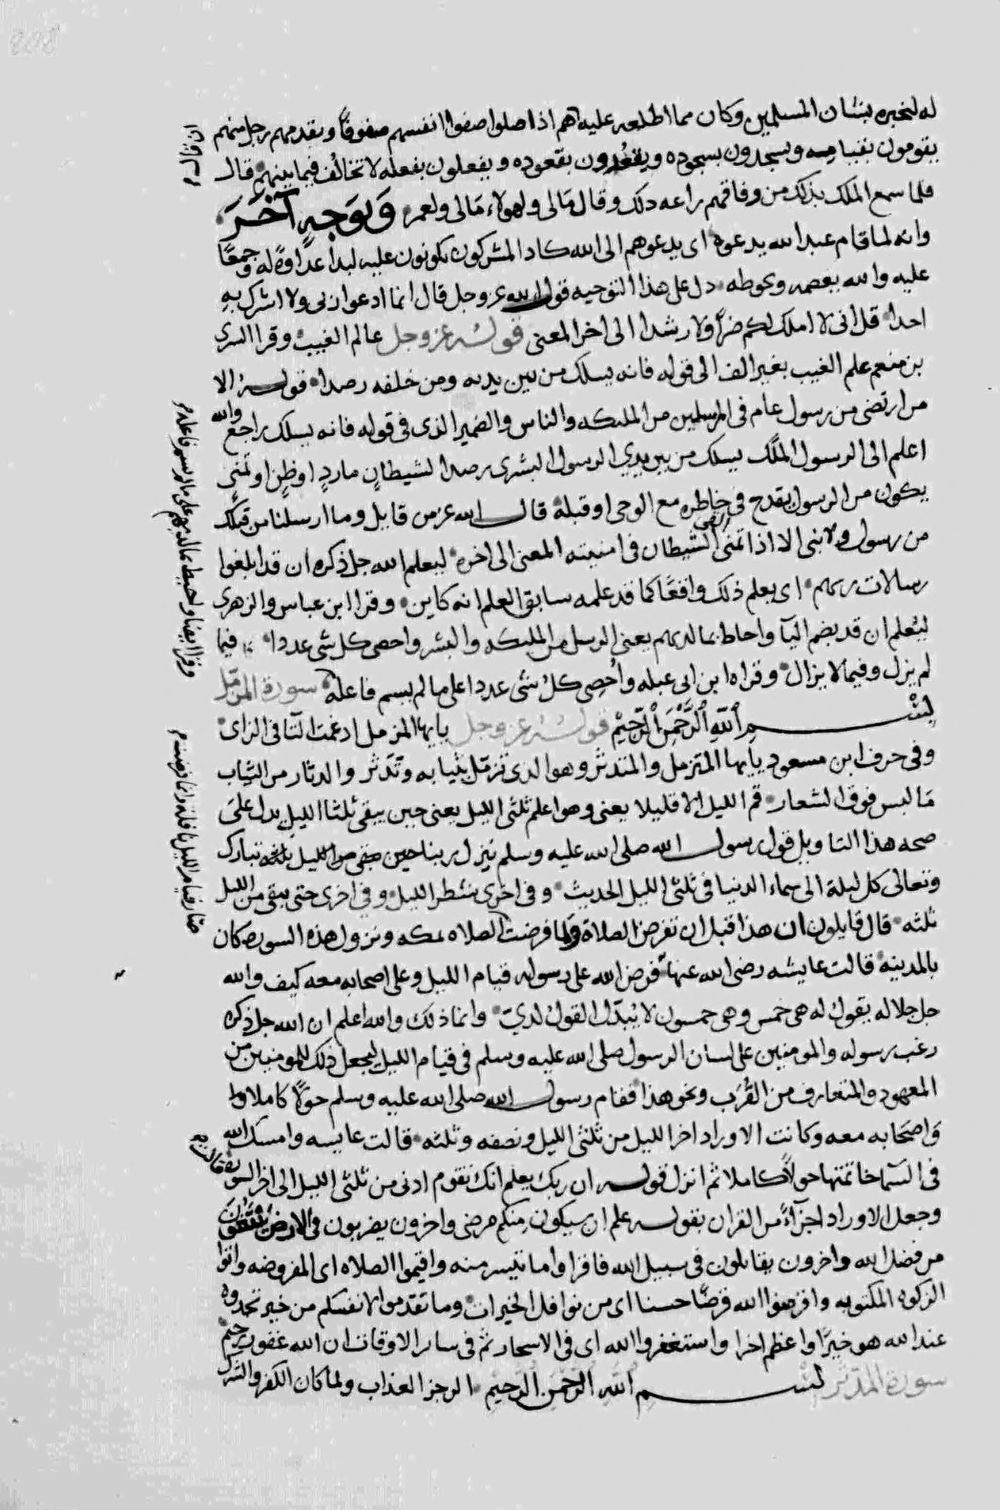 له لنخبره بشان المسلمين وكان مما اطلعه عليه هم اذا صلوا صفوا انفسهم صفوفا ويقدمهم رجل منهم
يقومون بقيامه ويسجدون بسجوده ويقعدون بقعوده ويفعلون بفعله لا تخالف فيما بينهم قال
فلما سمع الملك بذلك من وفاقهم راعه ذلك وقال مالى ولهولاء مالى ولعمر وبوجه آخر
وانه لما قام عبد الله يدعوه اى يدعوهم الى الله كاد المشركون يكونون عليه لبدا عداوة له وجمعا
عليه والله يعصمه ويحوطه دل على هذا التوجيه قول الله عز وجل قال انما ادعوا ربى ولا اشرك به
احدا قل انى لا املك لكم ضرا ولا رشدا الى اخر المعنى قوله عز وجل عالم الغيب وقرا السرى
بن منعم علم الغيب بغير الف الى قوله فانه يسلك من بين يديه ومن خلفه رصدا قوله الا
من ارتضى من رسول عام فى المرسلين من الملئكه والناس والضمير الذى فى قوله فانه يسلك راجع والله
اعلم الى الرسول الملك يسلك من بين يدى الرسول البشرى رصدا لشيطان مارد او ظن او تمنى
يكون من الرسول يقدح فى خاطره مع الوحى او قبله قال الله عز من قايل وما ارسلنا من قبلك
من رسول ولا نبى الا اذا تمنى القى الشيطان فى امنيته المعنى الى اخره ليعلم الله جل ذكره ان قد ابلغوا
رسالات ربهم اى يعلم ذلك واقعا كما قد علمه سابق العلم انه كاين وقرا ابن عباس والزهرى
ليعلم ان قد بضم اليآ واحاط بما لديهم يعنى الرسل من الملئكه والبشر واحصى كل شى عددا فيما
لم يزل وفيما لا يزال وقراه ابن ابى عبله وأحصى كل شى عددا على ما لم يسم فاعله سورة المزمل
بسم الله الرحمن الرحيم قوله عز وجل يايها المزمل ادغمت التآ فى الزاى
وفى حرف ابن مسعود يايها المتزمل والمتدثر وهو الذى تزمل بثيابه وتدثر والدثار من الثياب
ما لبس فوق الشعار قم الليل الا قليلا يعنى وهو اعلم ثلثى الليل يعنى حين يبقى ثلثا الليل يدل على
صحه هذا التاويل قول رسول الله صلى الله عليه وسلم ينزل ربنا حين يبقى من الليل ثلثه تبارك
وتعالى كل ليلة الى سماء الدنيا فى ثلثى الليل الحديث وفى اخرى بشطر الليل وفى اخرى حتى يبقى من الليل
ثلثه قال قايلون ان هذا قبل ان تفرض الصلاة ولما فرضت الصلاه بمكه ونزول هذه السوره كان
بالمدينه قالت عايشه رضى الله عنها فرض الله على رسوله قيام الليل وعلى اصحابه معه كيف والله
جل جلاله يقول له هى خمس وهى خمسون لا يبدل القول لدى وانما ذلك والله اعلم ان الله جل ذكره
رغب رسوله والمومنين على لسان الرسول صلى الله عليه وسلم فى قيام الليل ليجعل ذلك للمومنين من
المعهود والمتعارف من القرب ونحو هذا فقام رسول الله صلى الله عليه وسلم حولا كاملا
واصحابه معه وكانت الاوراد اخر الليل من ثلثى الليل ونصفه وثلثه قالت عايشه وامسك الله
فى السما خاتمتها حولا كاملا ثم انزل قوله ان ربك يعلم انك تقوم ادنى من ثلثى الليل الى اخر السوره
وجعل الاوراد اجزآء من القران بقوله علم ان سيكون منكم مرضى واخرون يضربون فى الارض يبتغون
من فضل الله واخرون يقاتلون فى سبيل الله فاقراوا ما تيسر منه واقيموا الصلاه اى المفروضه واتوا
الزكوه المكتوبه واقرضوا الله قرضا حسنا اى من نوافل الخيرات وما تقدموا لانفسكم من خير تجدوه
عند الله هو خيرا واعظم اجرا واستغفروا الله اى فى الاسحار ثم فى سائر الاوقات ان الله غفور رحيم
سورة المدثر بسم الله الرحمن الرحيم الرجز العذاب ولما كان الكفر والشرك